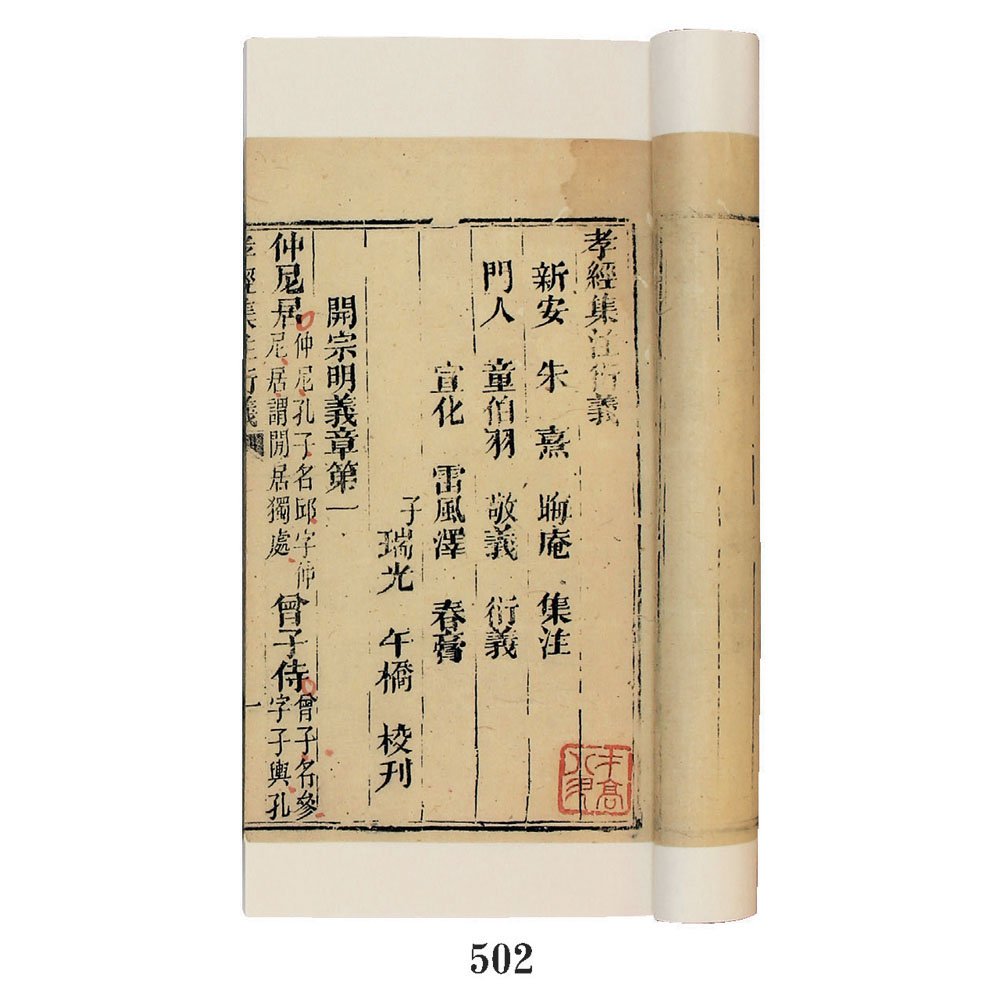 孝經集注衍義
新安 朱熹 晦庵 集注
門人 童伯羽 敬義 衍義
宣化 雷風澤 春膏
子 瑞光 午橋 校刊
開宗明義章第一
仲尼居 仲尼孔子名邱字仲尼居謂閒居獨處 曾子侍 曾子名參字子輿孔
孝經集注衍義 一
502